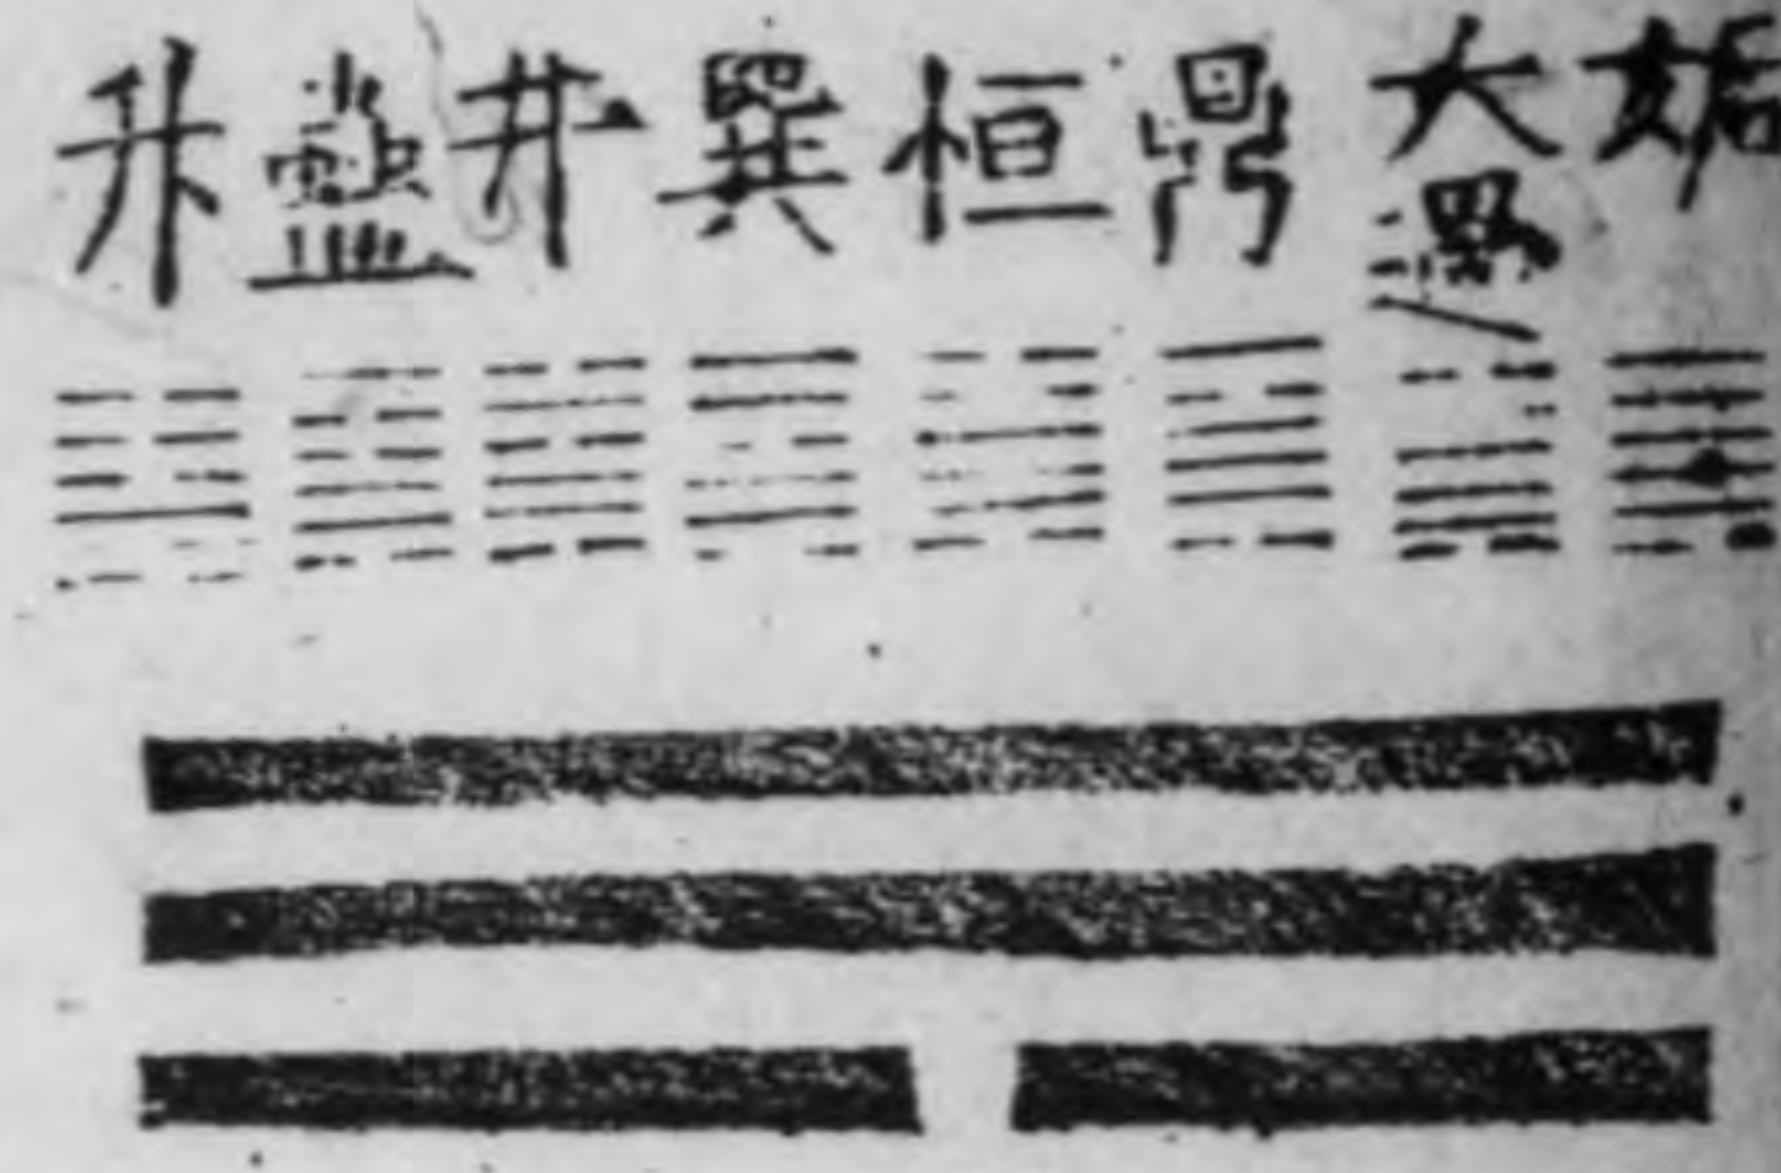 姤
大過
鼎
恒
巽
井
蠱
升